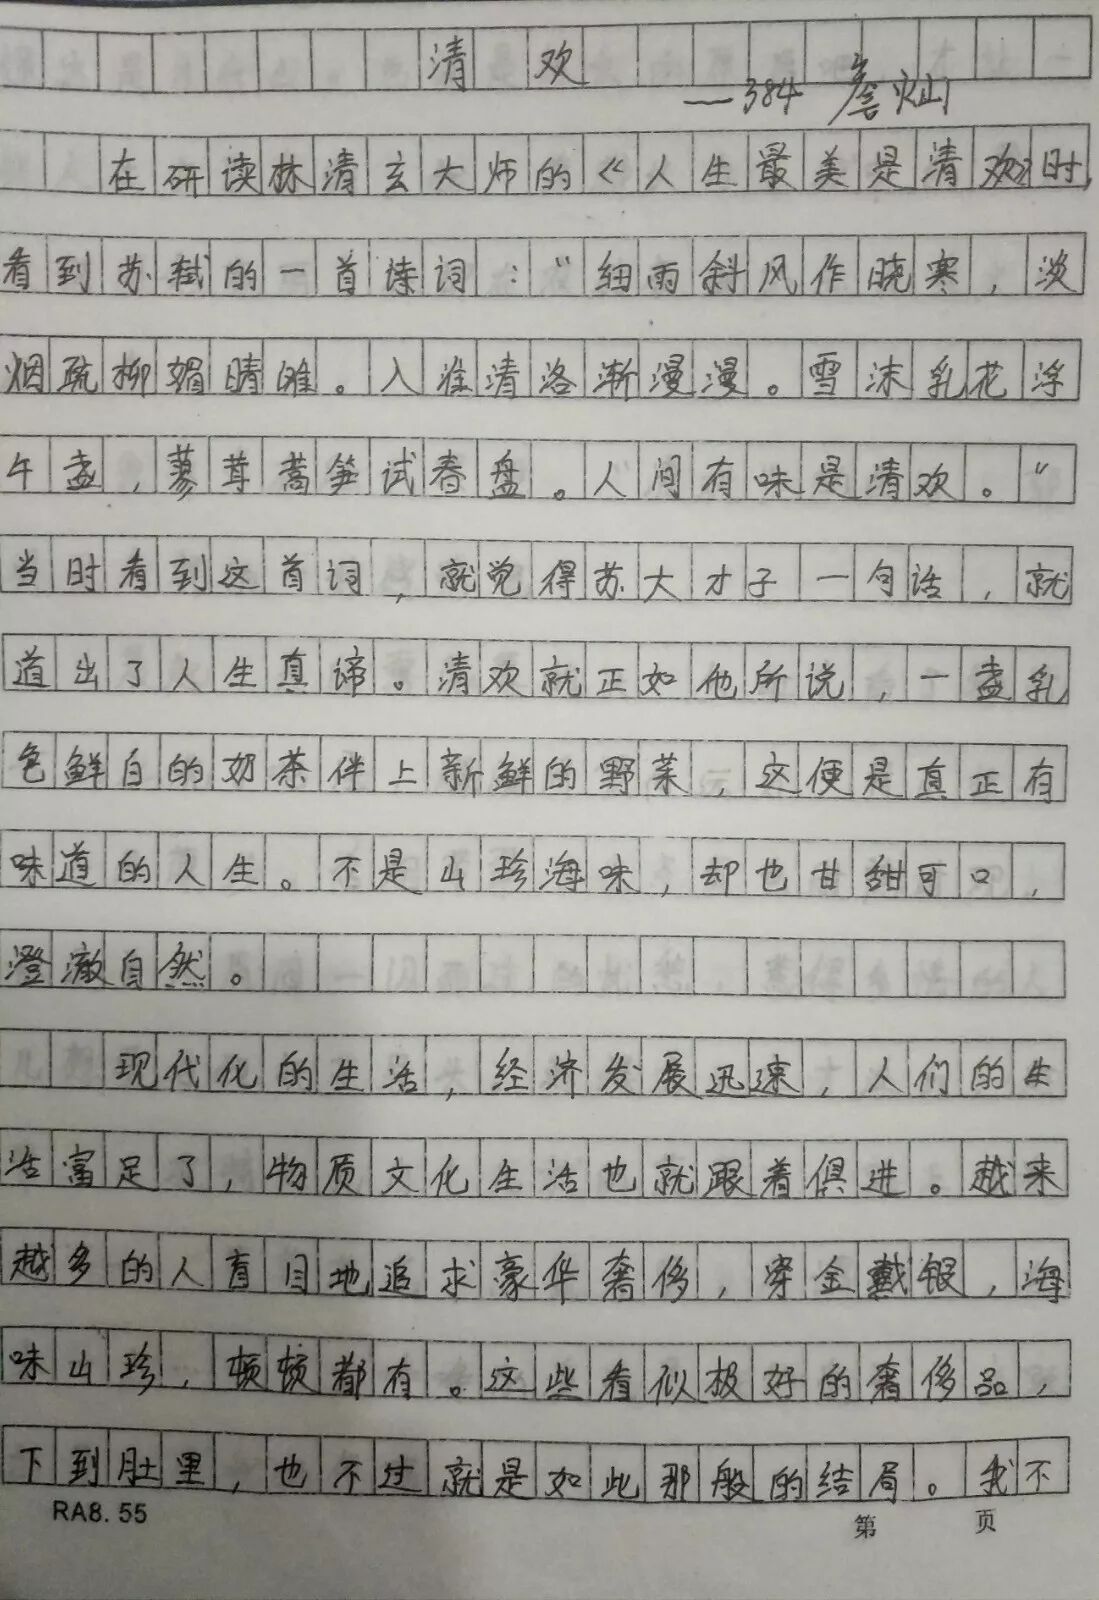 清欢
——384 詹灿
在研读林清玄大师的《人生最美是清欢》时,
看到苏轼的一首诗词:“细雨斜风作晓寒,淡
烟疏柳媚晴滩。入淮清洛渐漫漫。雪沫乳花浮
午盏,蓼茸蒿笋试春盘。人间有味是清欢。”
当时看到这首词,就觉得苏大才子一句话,就
道出了人生真谛。清欢就正如他所说,一盏乳
色鲜白的奶茶伴上新鲜的野菜,这便是真正有
味道的人生。不是山珍海味,却也甘甜可口,
澄澈自然。
现代化的生活,经济发展迅速,人们的生
活富足了,物质文化生活也就跟着俱进。越来
越多的人盲目地追求豪华奢侈,穿金戴银,海
味山珍,顿顿都有。这些看似极好的奢侈品,
下到肚里,也不过就是如此那般的结局。我不
RA8.55
第 页